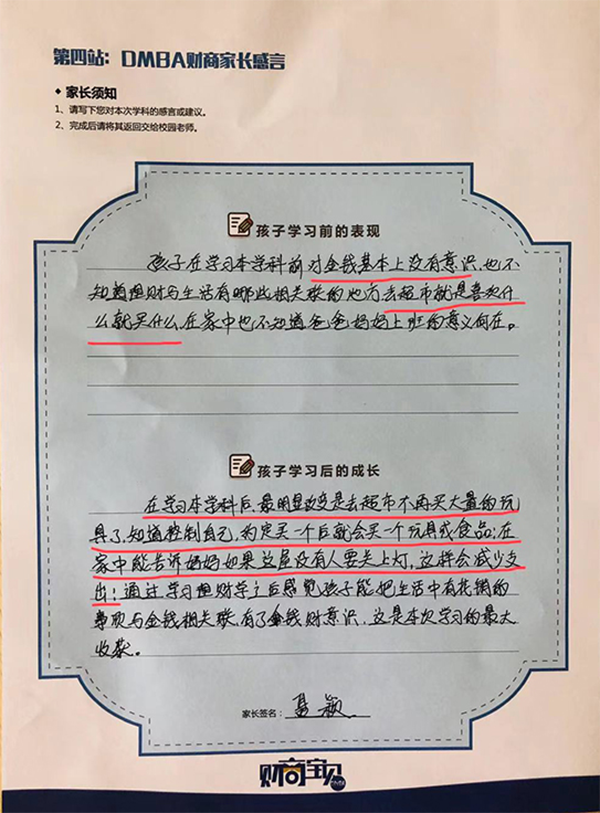 第四站：DMBA财商家长感言
◆ 家长须知
1、请写下您对本次学科的感言或建议。
2、完成后请将其返回交给校园老师。
孩子学习前的表现
孩子在学习本学科前对金钱基本上没有意识，也不
知道理财与生活有哪些相关联的地方去超市就是喜欢什
么就买什么，在家中也不知道爸爸妈妈上班的意义何在。
孩子学习后的成长
在学习本学科后，最明显改变是去超市不再买大量的玩
具了，知道控制自己，约定买一个后就会买一个玩具或食品；在
家中能告诉妈妈如果这屋没有人要关上灯，这样会减少支
出；通过学习理财学了后感觉孩子能把生活中有花销的
事项与金钱相关联，有了金钱财意识，这是本次学习的最大
收获。
家长签名：聂颖
财商宝贝